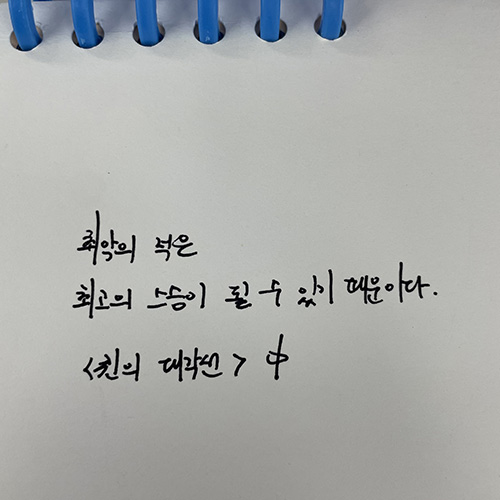 최악의 적은
최고의 스승이 될 수 있기 때문이다.
<친의 대각선> 中